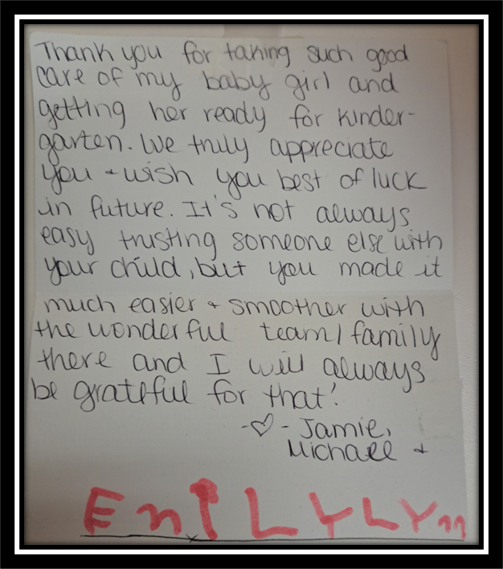 Thank you for taking such good
care of my baby girl and
getting her ready for kinder-
garten. We truly appreciate
you + wish you best of luck
in future. It's not always
easy trusting someone else with
your child, but you made it
much easier + smoother with
the wonderful team/family
there and I will always
be grateful for that!
-♡- Jamie,
Michael +
EmILYLYnn